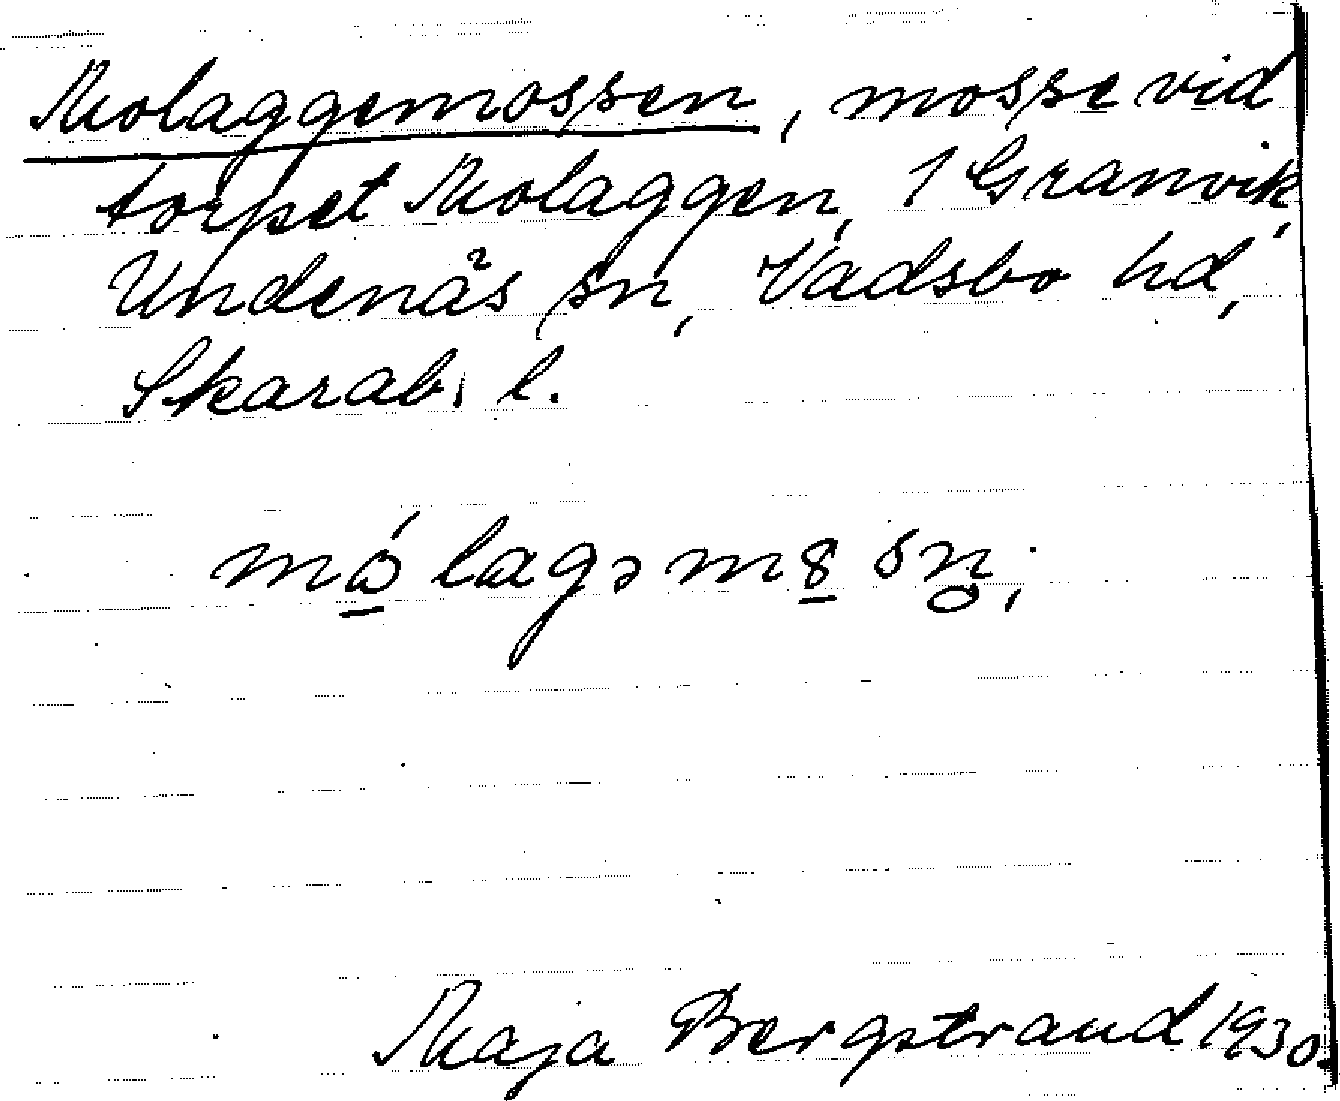 Molaggemossen, mosse vid
torpet Molaggen, 1 Granvik,
Undenäs sn, Vadsbo hd,
Skarab. l.
Maja Bergstrand 1930.